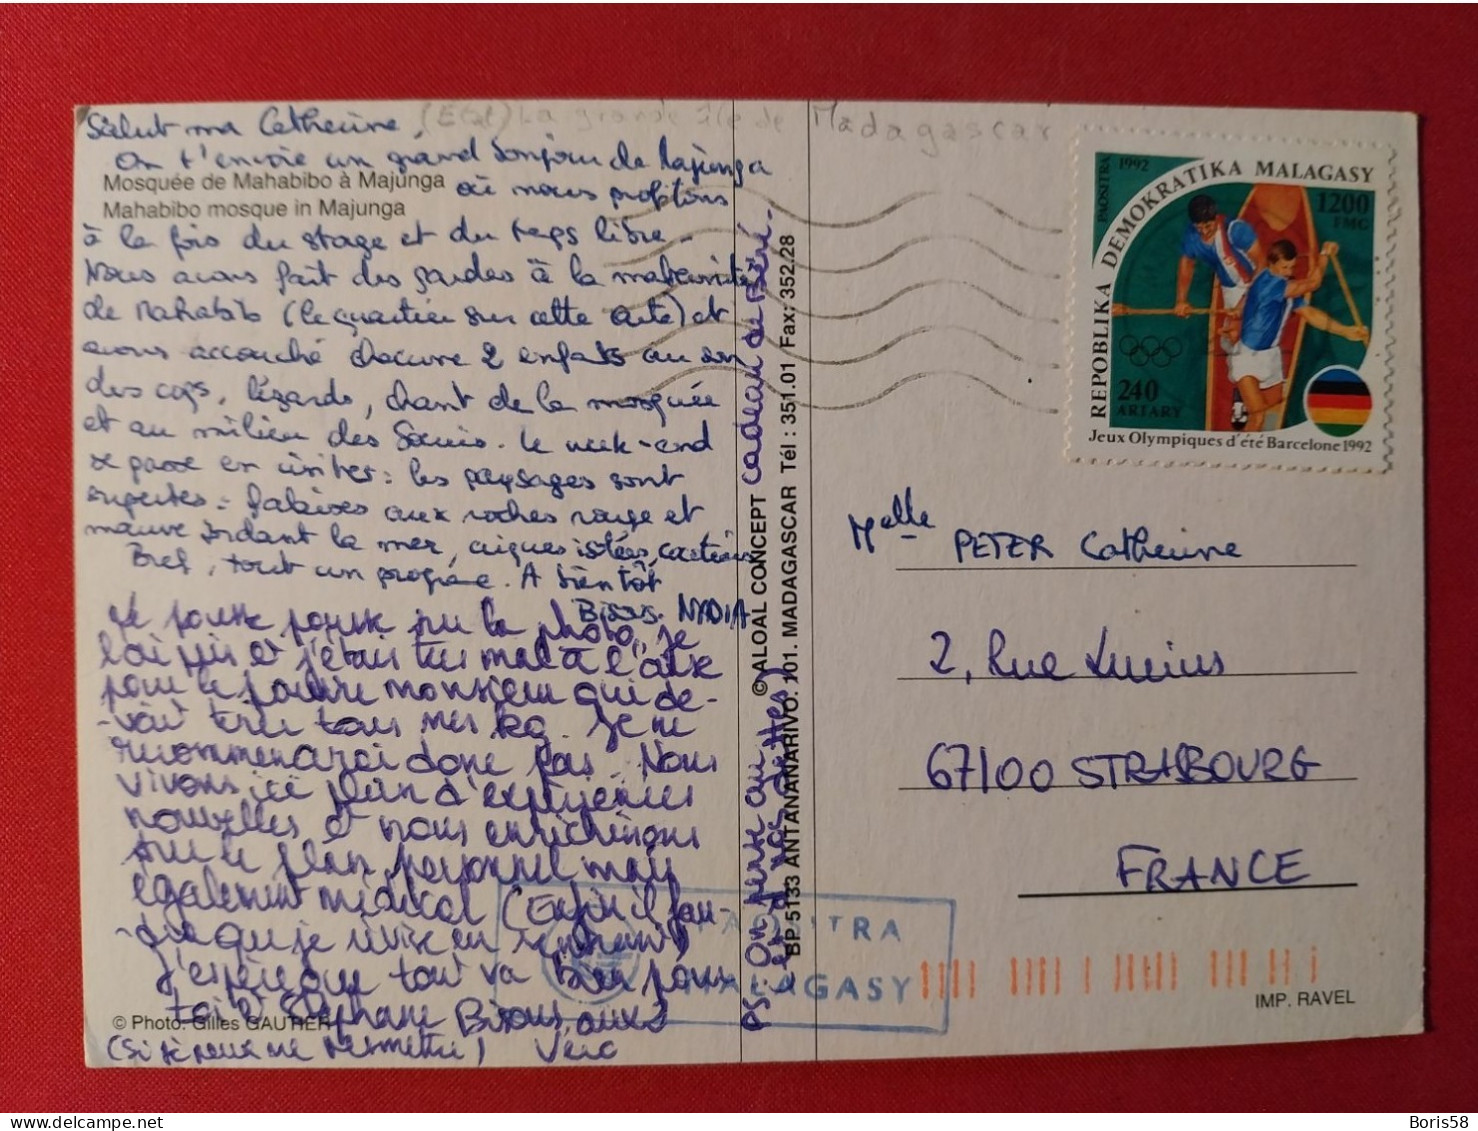 Salut ma Catherine, (Etat) La grande île de Madagascar
On t'envoie un grand bonjour de Majunga
Mosquée de Mahabibo à Majunga
où nous profitons
Mahabibo mosque in Majunga
à la fois du stage et du temps libre.
Nous avons fait des gardes à la maternité
de Mahabibo (le quartier sur cette carte) et
avons accouché chacune 2 enfants au son
des coqs, lézards, chant de la mosquée
et au milieu des souris. Le week-end
se passe en visites : les paysages sont
superbes : falaises aux roches rouge et
mauve bordant la mer,
Bref, tout un programme. A bientôt
Bises. NADIA
Je pousse pousse sur la photo, je
l'ai pris et j'étais très mal à l'aise
pour le pauvre monsieur qui de-
-vait tirer tous mes kg. Je ne
recommencerai donc pas. Nous
vivons ici plein d'expériences
nouvelles et nous enrichissons
sur le plan personnel mais
également médical (Enfin il fau-
-dra que je révise en rentrant)
J'espère que tout va bien pour
toi & Stéphane Bisous aux 2
© Photo: Gilles GAUTIER
(Si je peux me permettre) Véro
PS: On pense au thés
et à vos dettes!
cadeau de Béné.
© ALOAL CONCEPT
BP 5133 ANTANANARIVO. 101. MADAGASCAR Tél : 351.01 Fax: 352.28
PAOSITRA
MALAGASY
PAOSITRA 1992
REPOBLIKA DEMOKRATIKA MALAGASY
1200
FMG
240
ARIARY
Jeux Olympiques d'été Barcelone 1992
Melle PETER Catherine
2, Rue Lucius
67100 STRASBOURG
FRANCE
IMP. RAVEL
Boris58